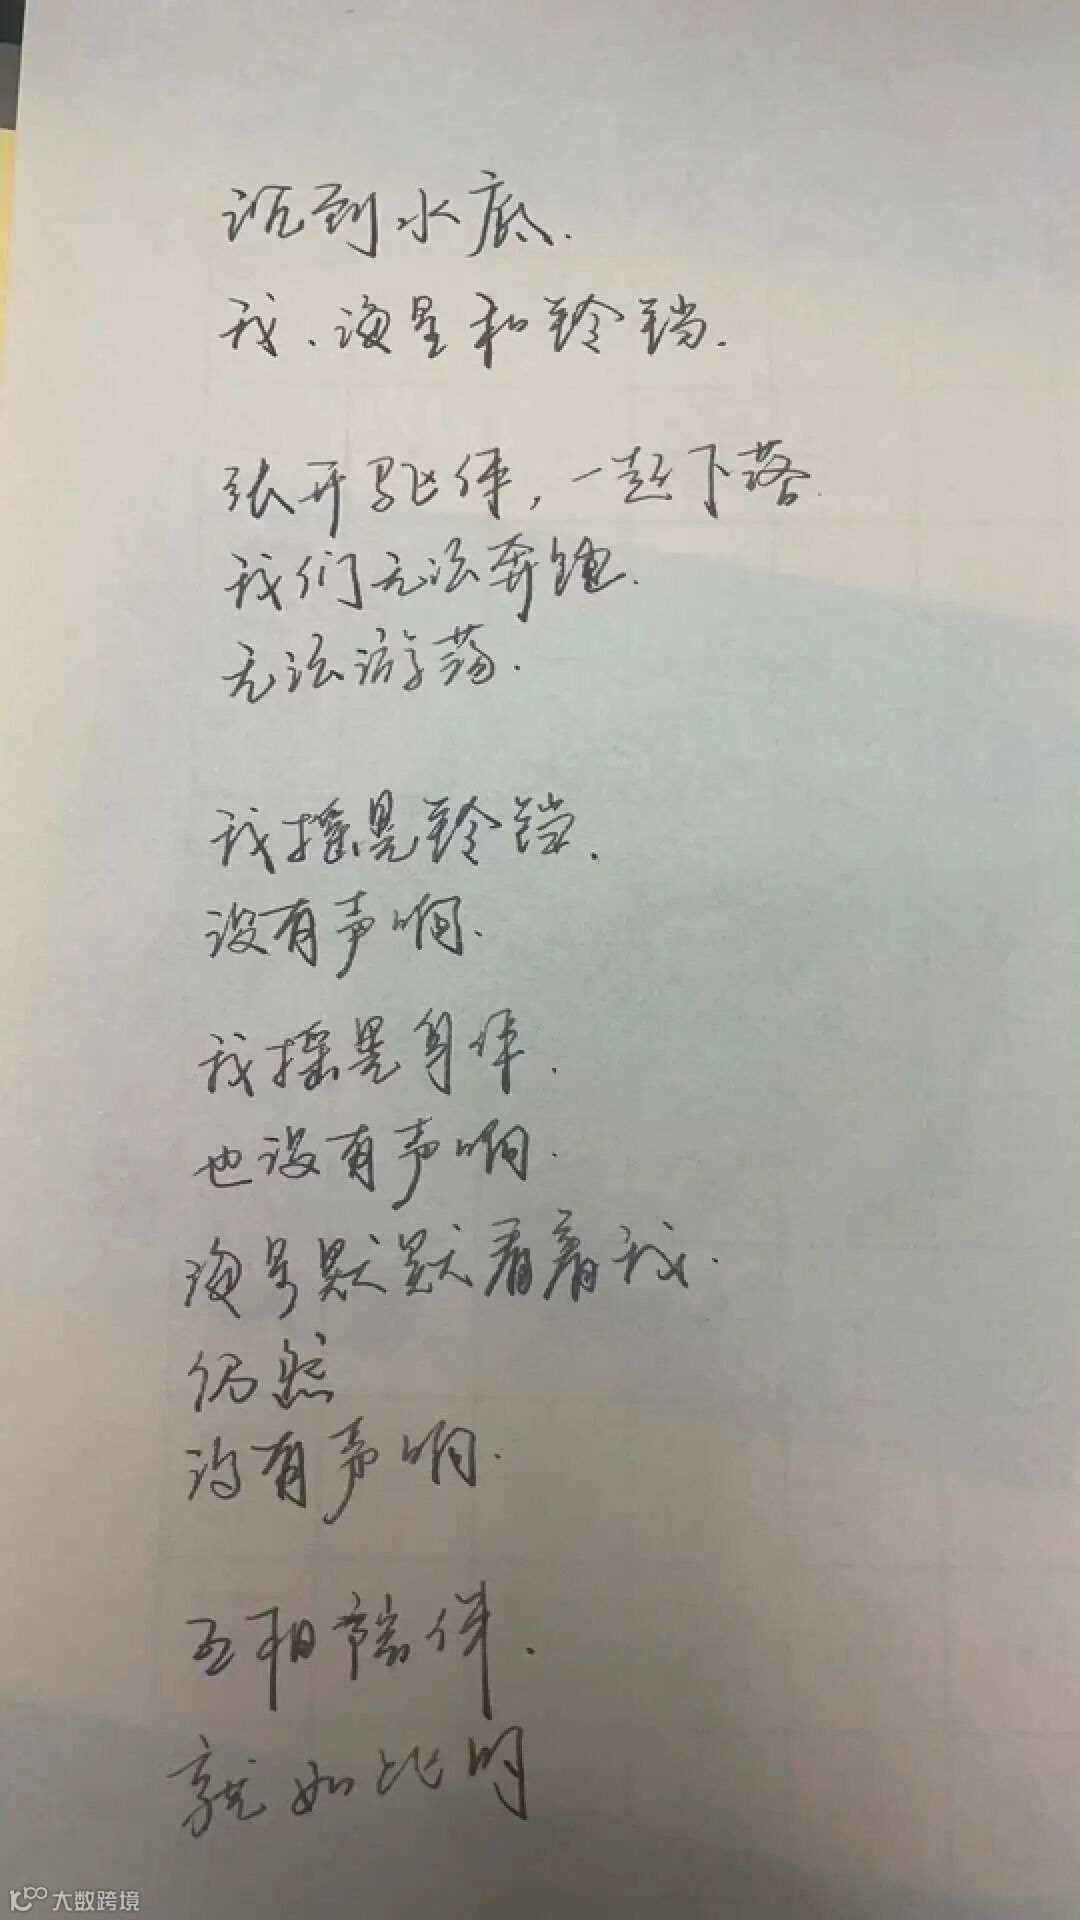 沉到水底.
我.海星和铃铛.
张开躯体,一起下落.
我们无法奔跑.
无法游荡.
我摇晃铃铛.
没有声响.
我摇晃身体.
也没有声响.
海星默默看着我.
仍然
没有声响.
互相陪伴.
就如此时
大数跨境